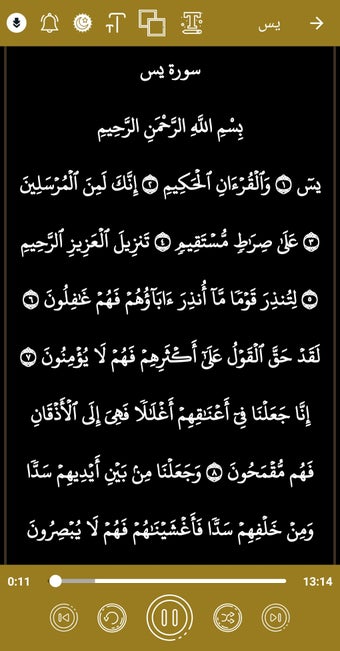 يس
سورة يس
بِسْمِ اللَّهِ الرَّحْمَنِ الرَّحِيمِ
يسٓ ۝١ وَٱلْقُرْءَانِ ٱلْحَكِيمِ ۝٢ إِنَّكَ لَمِنَ ٱلْمُرْسَلِينَ
۝٣ عَلَىٰ صِرَٰطٍ مُّسْتَقِيمٍ ۝٤ تَنزِيلَ ٱلْعَزِيزِ ٱلرَّحِيمِ
۝٥ لِتُنذِرَ قَوْمًا مَّآ أُنذِرَ ءَابَآؤُهُمْ فَهُمْ غَٰفِلُونَ ۝٦
لَقَدْ حَقَّ ٱلْقَوْلُ عَلَىٰٓ أَكْثَرِهِمْ فَهُمْ لَا يُؤْمِنُونَ ۝٧
إِنَّا جَعَلْنَا فِىٓ أَعْنَٰقِهِمْ أَغْلَٰلًا فَهِىَ إِلَى ٱلْأَذْقَانِ
فَهُم مُّقْمَحُونَ ۝٨ وَجَعَلْنَا مِنۢ بَيْنِ أَيْدِيهِمْ سَدًّا
وَمِنْ خَلْفِهِمْ سَدًّا فَأَغْشَيْنَٰهُمْ فَهُمْ لَا يُبْصِرُونَ
0:11 13:14